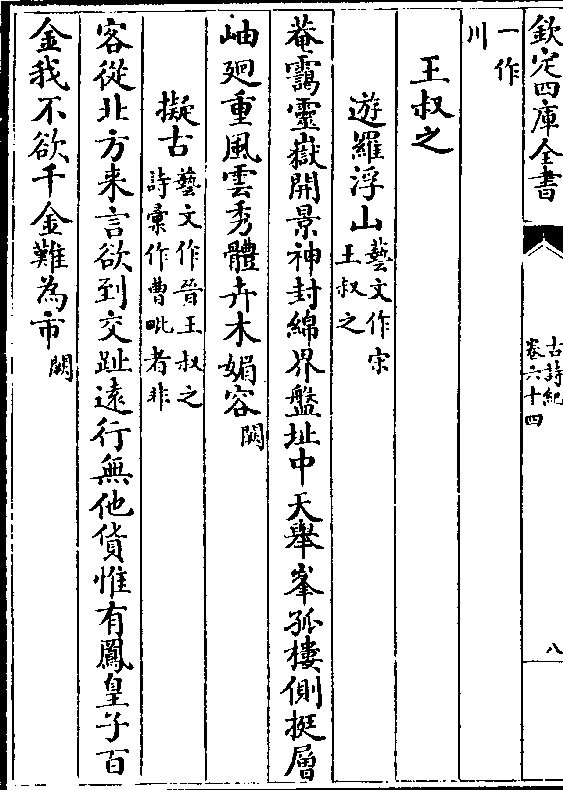 欽定四庫全書
古詩紀
卷六十四
八
一作
川
王叔之
遊羅浮山
藝文作宋
王叔之
菴靄靈嶽開景神封綿界盤址中天舉峯孤樓側挺層
岫廻重風雲秀體卉木媚容
闕
擬古
藝文作晉王叔之
詩彙作曹毗者非
客從北方来言欲到交趾遠行無他貨惟有鳳皇子百
金我不欲千金難為市
闕